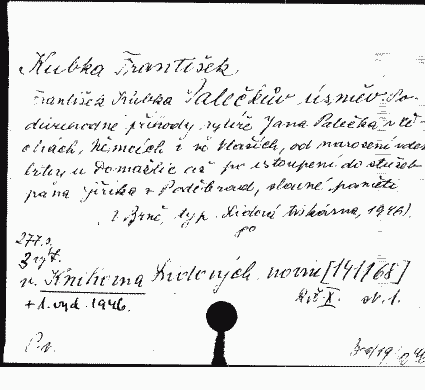 Kubka František
František Kubka Palečkův úsměv. Po-
divuhodné příhody rytíře Jana Palečka v Če-
chách, Němcích i ve Vlaších, od narození v den
bitvy u Domažlic až po vstoupení do služeb
pána Jiříka z Poděbrad, slavné paměti
V Brně, typ. Lidová tiskárna, 1946).
8°
277 s.
3 výt.
v. Knihovna Lidových novin [141/168]
+ 1. vyd. 1946.
sv. 1.